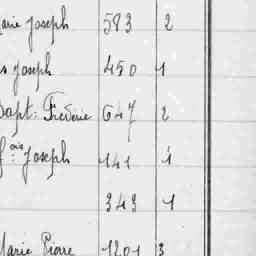 Marie Joseph 593 2
s Joseph 450 1
Bapt: Frédéric 647 2
fois Joseph 141 1
343 1
Marie Pierre 1201 3